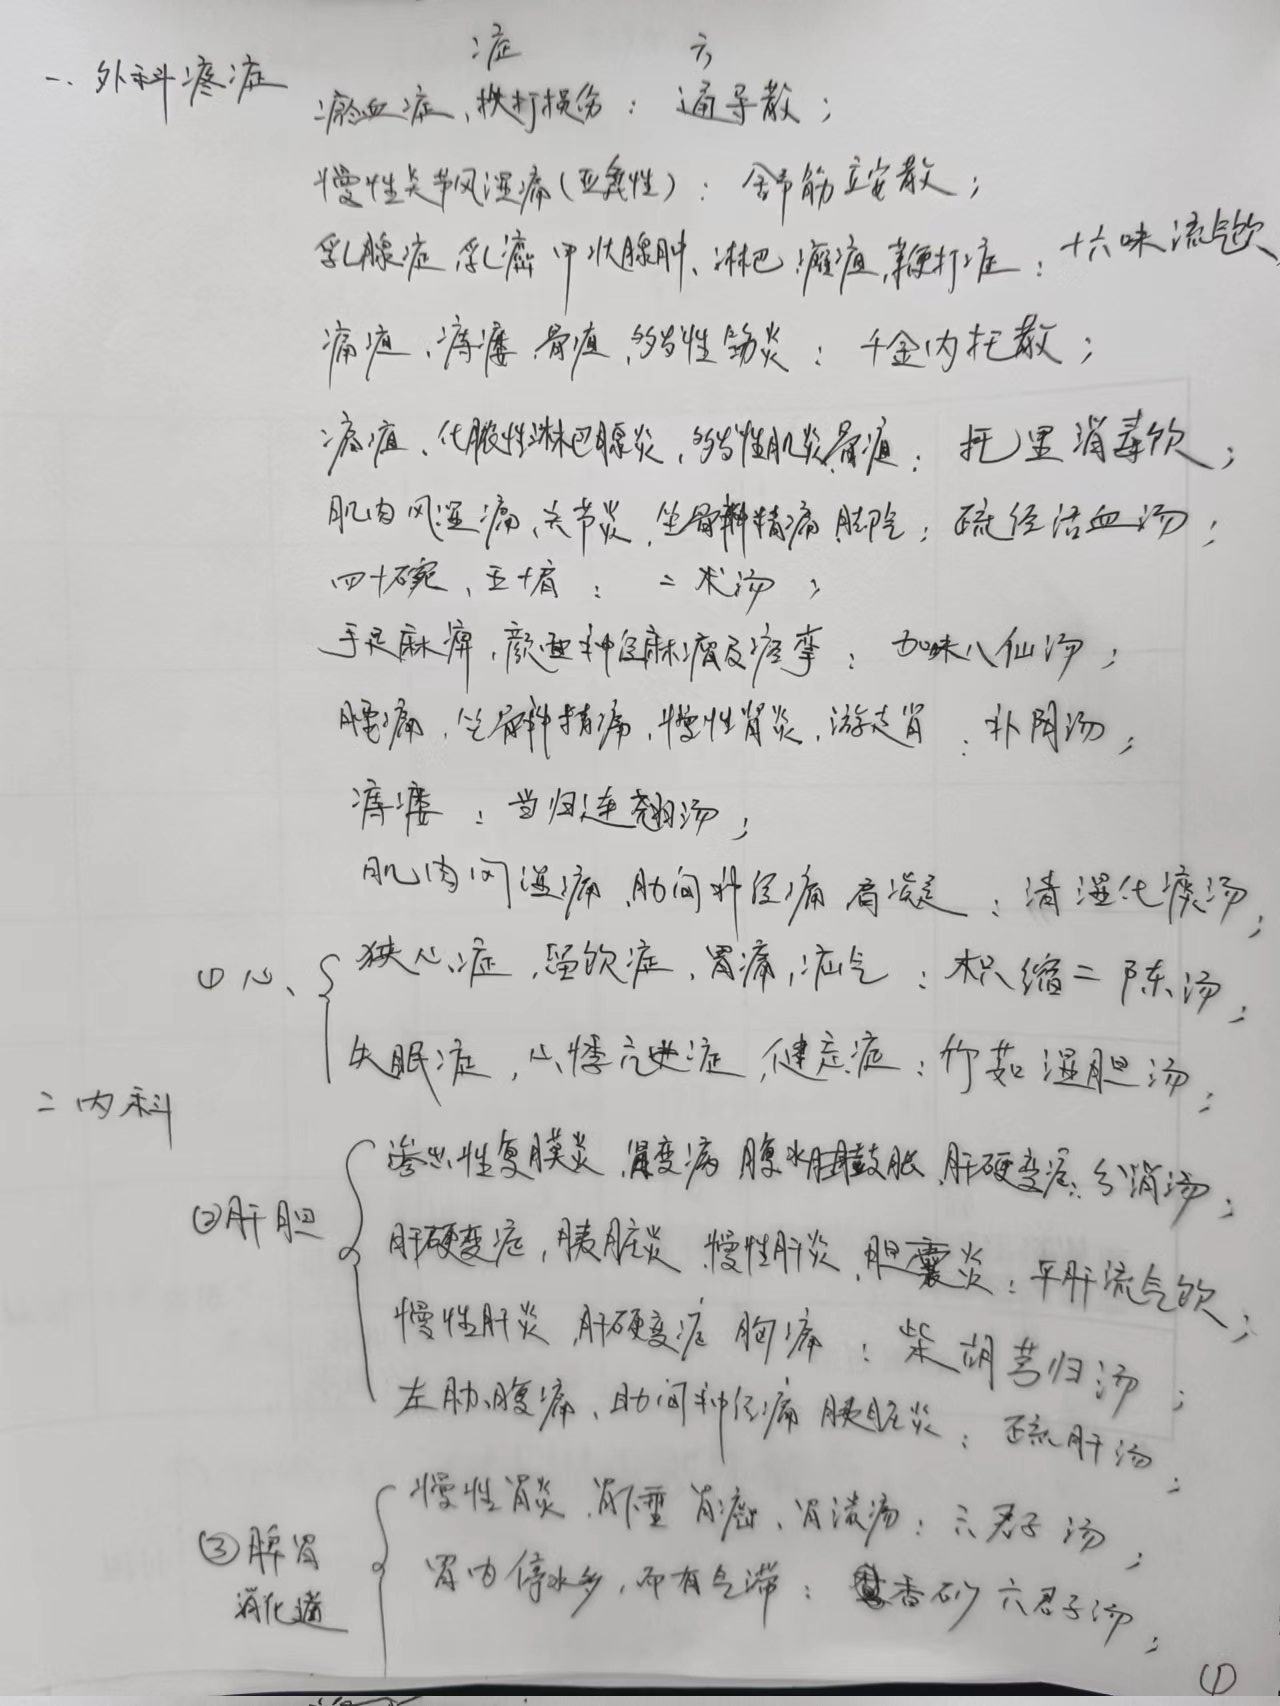 症 方
一、外科疼症
瘀血症、跌打损伤：通导散；
慢性关节风湿痛（亚急性）：舒筋立安散；
乳腺症 乳癌 甲状腺肿、淋巴 鞭打症：十六味流气饮
痈疽、痔瘘 骨疽 多发性筋炎：千金内托散；
化脓性淋巴腺炎，多发性肌炎 骨疽：托里消毒饮；
肌肉风湿痛、关节炎、坐骨神精痛 脚气：疏经活血汤；
四十碗、五十肩：二术汤；
手足麻痹，颜面神经麻痹及痉挛：加味八仙汤；
腰痛，坐骨神精痛，慢性肾炎，游走肾：补阴汤；
痔瘘：当归连翘汤；
肌肉风湿痛 肋间神经痛 肩凝是：清湿化痰汤；
①心、 狭心症，留饮症，胃痛，疝气：枳缩二陈汤；
失眠症，心悸亢进症，健忘症：竹茹温胆汤；
二内科
②肝胆 渗出性复膜炎 腹水膨鼓胀 肝硬变症：分消汤；
肝硬变症，胰脏炎 慢性肝炎、胆囊炎：平肝流气饮；
慢性肝炎 肝硬变症 胸痛：柴胡芎归汤；
左肋腹痛、肋间神经痛 胰脏炎：疏肝汤；
③脾胃 慢性胃炎 胃下垂 胃癌、胃溃疡：六君子汤；
消化道 胃内停水多，而有气滞：香砂六君子汤；
①